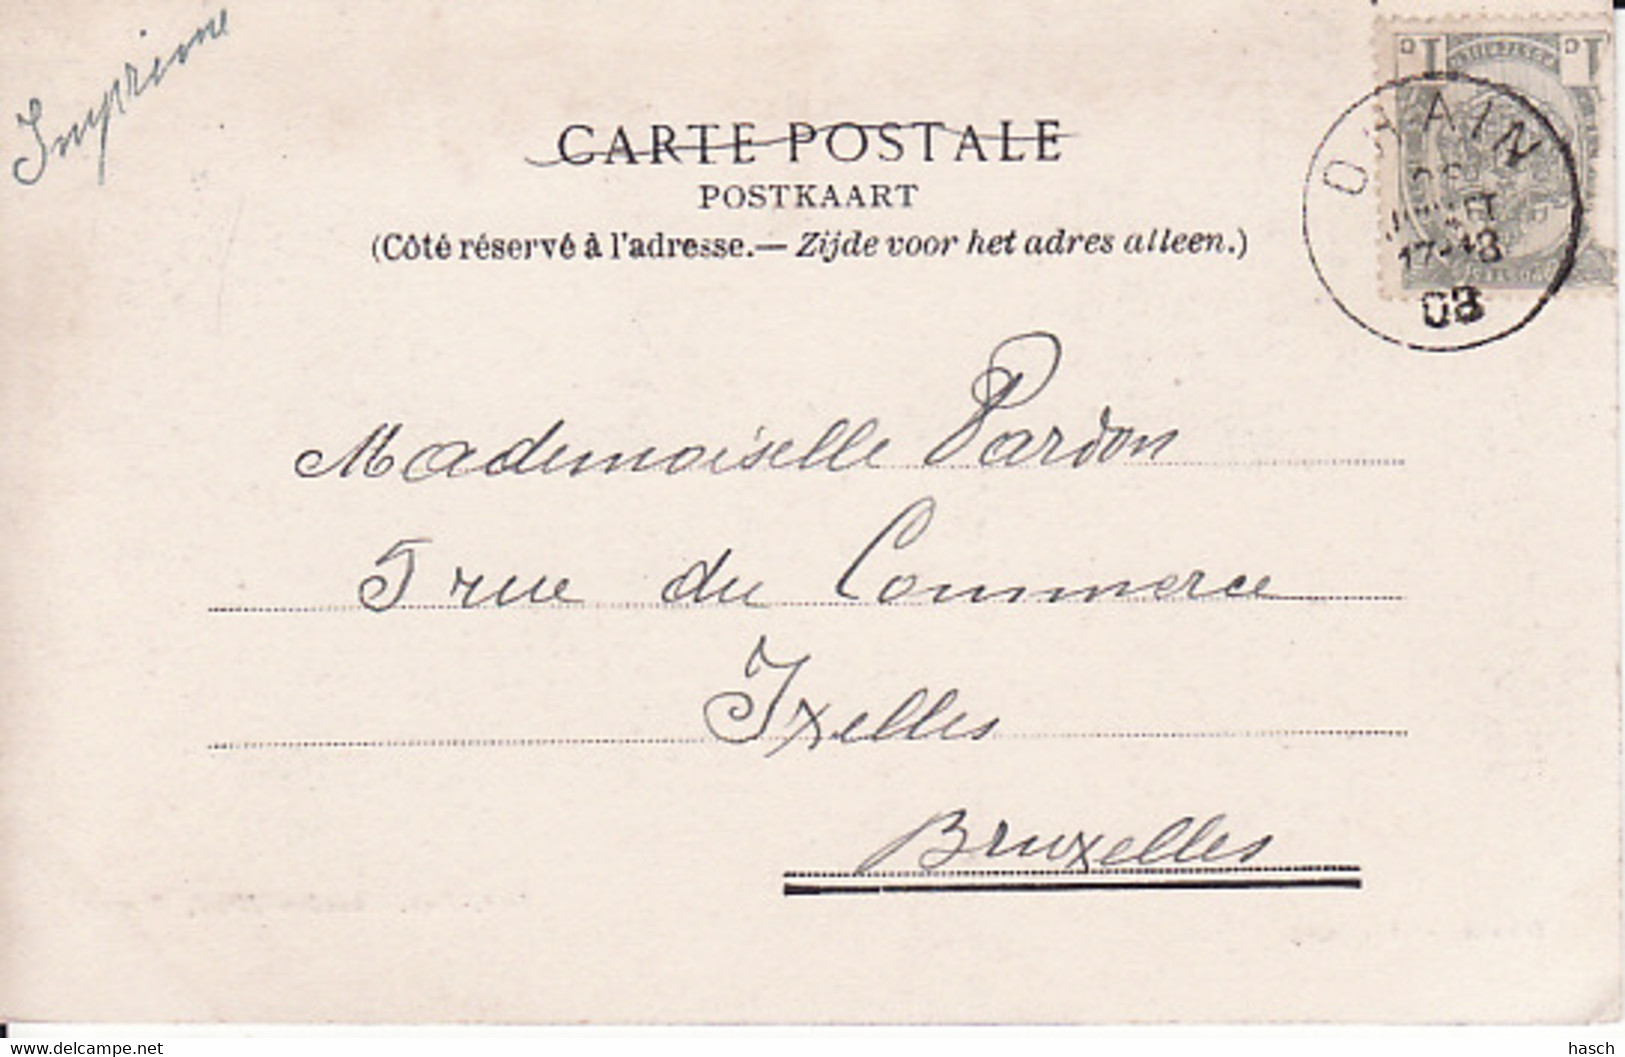 Imprime
CARTE POSTALE
POSTKAART
(Côté réservé à l'adresse.— Zijde voor het adres alleen.)
OHAIN
17-18
03
Mademoiselle Pardon
5 rue du Commerce
Ixelles
Bruxelles
www.delcampe.net
hasch